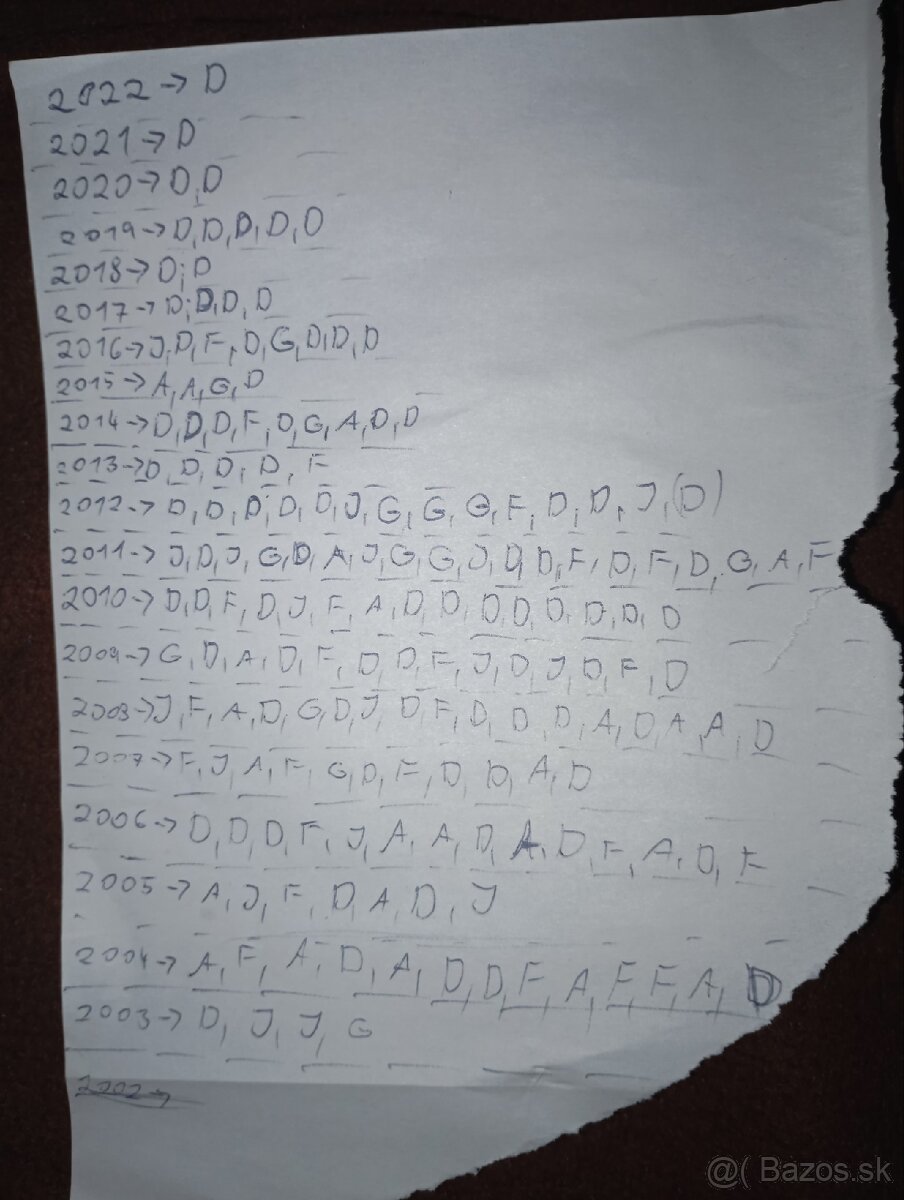 2022→D
2021→D
2020→D,D
2019→D,D,D,D,D
2018→D,D
2017→D,D,D,D
2016→J,D,F,D,G,D,D,D
2015→A,A,G,D
2014→D,D,D,F,D,G,A,D,D
2013→D,D,D,D,F
2012→D,D,D,D,D,J,G,G,G,F,D,D,J,(D)
2011→J,D,J,G,D,A,J,G,G,J,D,D,F,D,F,D,G,A,F
2010→D,D,F,D,J,F,A,D,D,D,D,D,D,D,D
2009→G,D,A,D,F,D,D,F,J,D,J,D,F,D
2008→J,F,A,D,G,D,J,D,F,D,D,D,A,D,A,A,D
2007→F,J,A,F,G,D,F,D,D,A,D
2006→D,D,D,F,J,A,A,D,A,D,F,A,D,F
2005→A,J,F,D,A,D,J
2004→A,F,A,D,A,D,D,F,A,F,F,A,D
2003→D,J,J,G
2002→
@( Bazos.sk